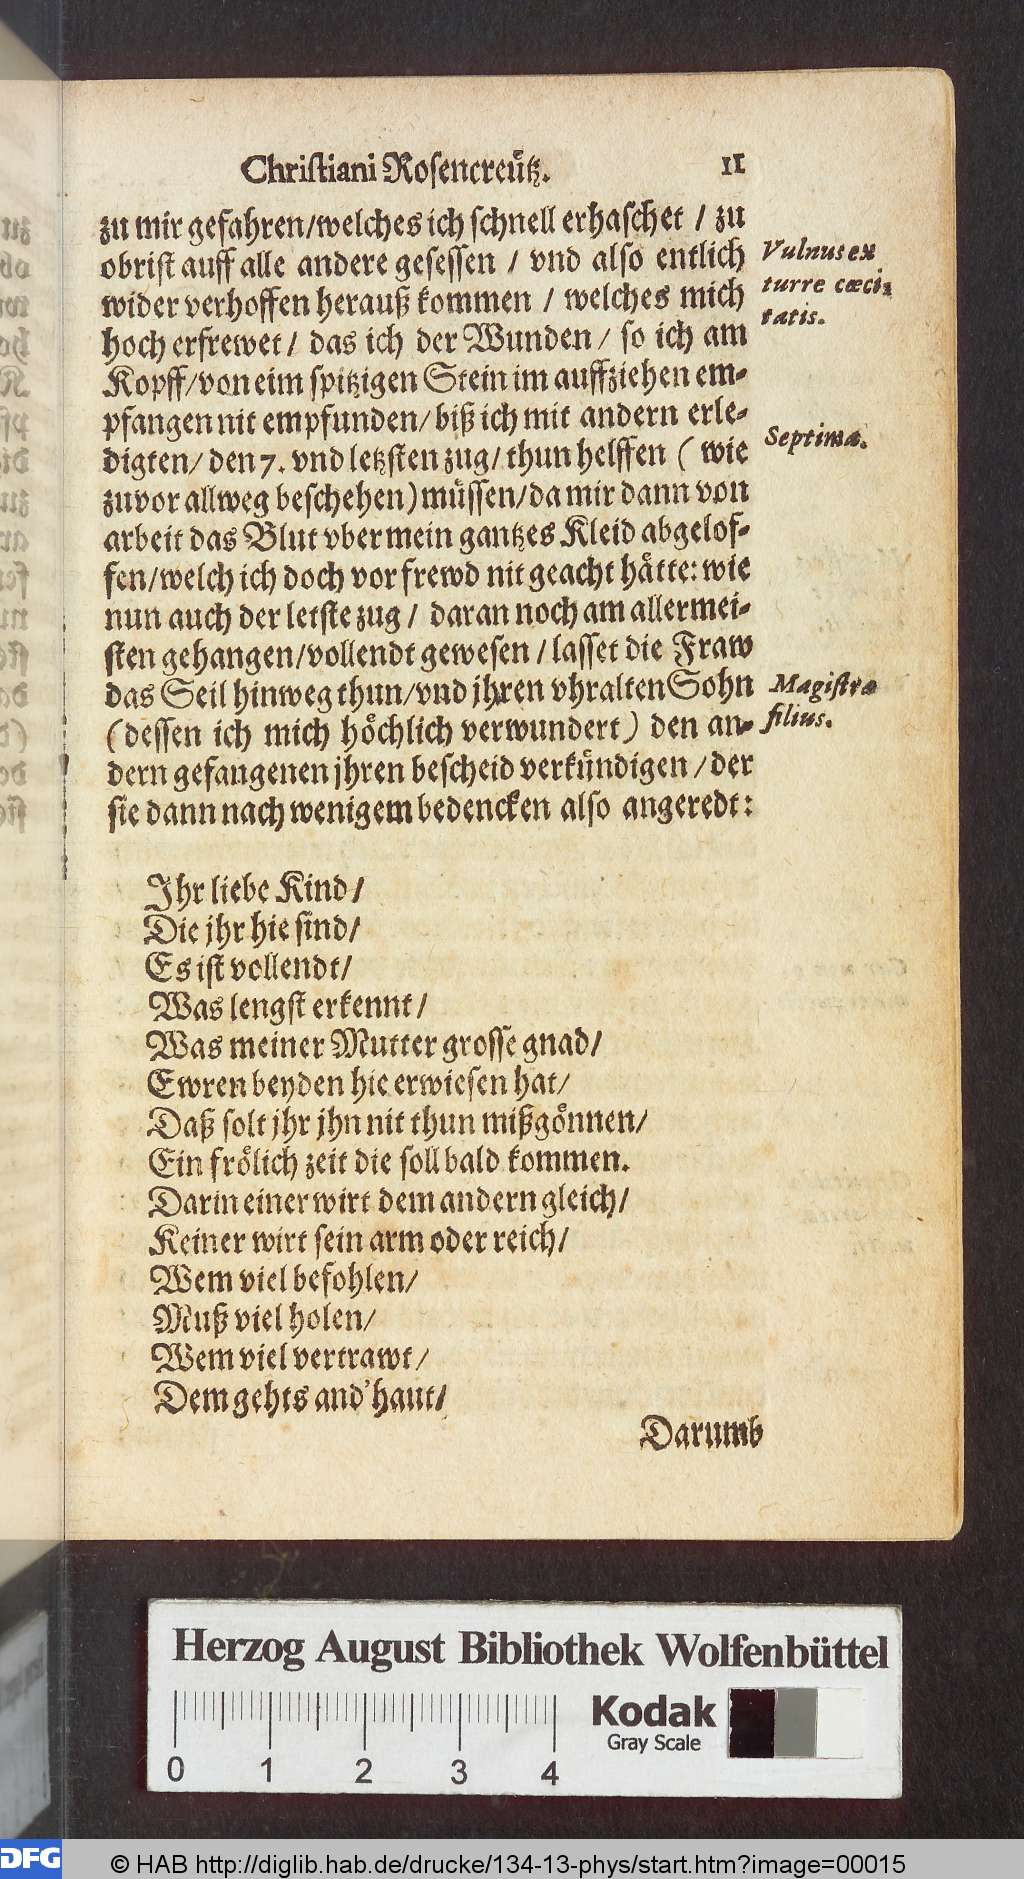 Christiani Rosencreütz. 11
zu mir gefahren/welches ich schnell erhaschet / zu
obrist auff alle andere gesessen / vnd also entlich
wider verhoffen herauß kommen / welches mich
hoch erfrewet/ das ich der Wunden/ so ich am
Kopff/von eim spitzigen Stein im auffziehen em-
pfangen nit empfunden/ biß ich mit andern erle-
digten/ den 7. vnd letzsten zug/ thun helffen ( wie
zuvor allweg beschehen) müssen/da mir dann von
arbeit das Blut vber mein gantzes Kleid abgelof-
fen/welch ich doch vor frewd nit geacht hätte: wie
nun auch der letste zug / daran noch am allermei-
sten gehangen/vollendt gewesen / lasset die Fraw
das Seil hinweg thun/vnd jhren vhralten Sohn
(dessen ich mich höchlich verwundert) den an-
dern gefangenen jhren bescheid verkündigen /der
sie dann nach wenigem bedencken also angeredt:
Vulnus ex
turre cæci-
tatis.
Septima.
Magistræ
filius.
Ihr liebe Kind/
Die jhr hie sind/
Es ist vollendt/
Was lengst erkennt/
Was meiner Mutter grosse gnad/
Ewren beyden hie erwiesen hat/
Daß solt jhr jhn nit thun mißgönnen/
Ein frölich zeit die soll bald kommen.
Darin einer wirt dem andern gleich/
Keiner wirt sein arm oder reich/
Wem viel befohlen/
Muß viel holen/
Wem viel vertrawt/
Dem gehts and' haut/
Darumb
Herzog August Bibliothek Wolfenbüttel
Kodak
Gray Scale
0 1 2 3 4
DFG
© HAB http://diglib.hab.de/drucke/134-13-phys/start.htm?image=00015